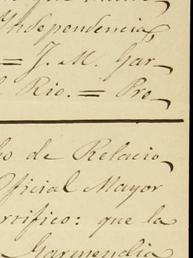 Independencia,
= J. M. Gar-
l Rio. = Pro-
ho de Relacio,
Oficial Mayor
orrifico: que la
Garmendia